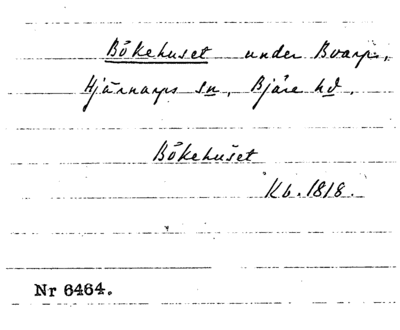 Bökehuset under Boarps,
Hjärnarps sn, Bjäre hd.
Bökehuset
Kb. 1818.
Nr 6464.